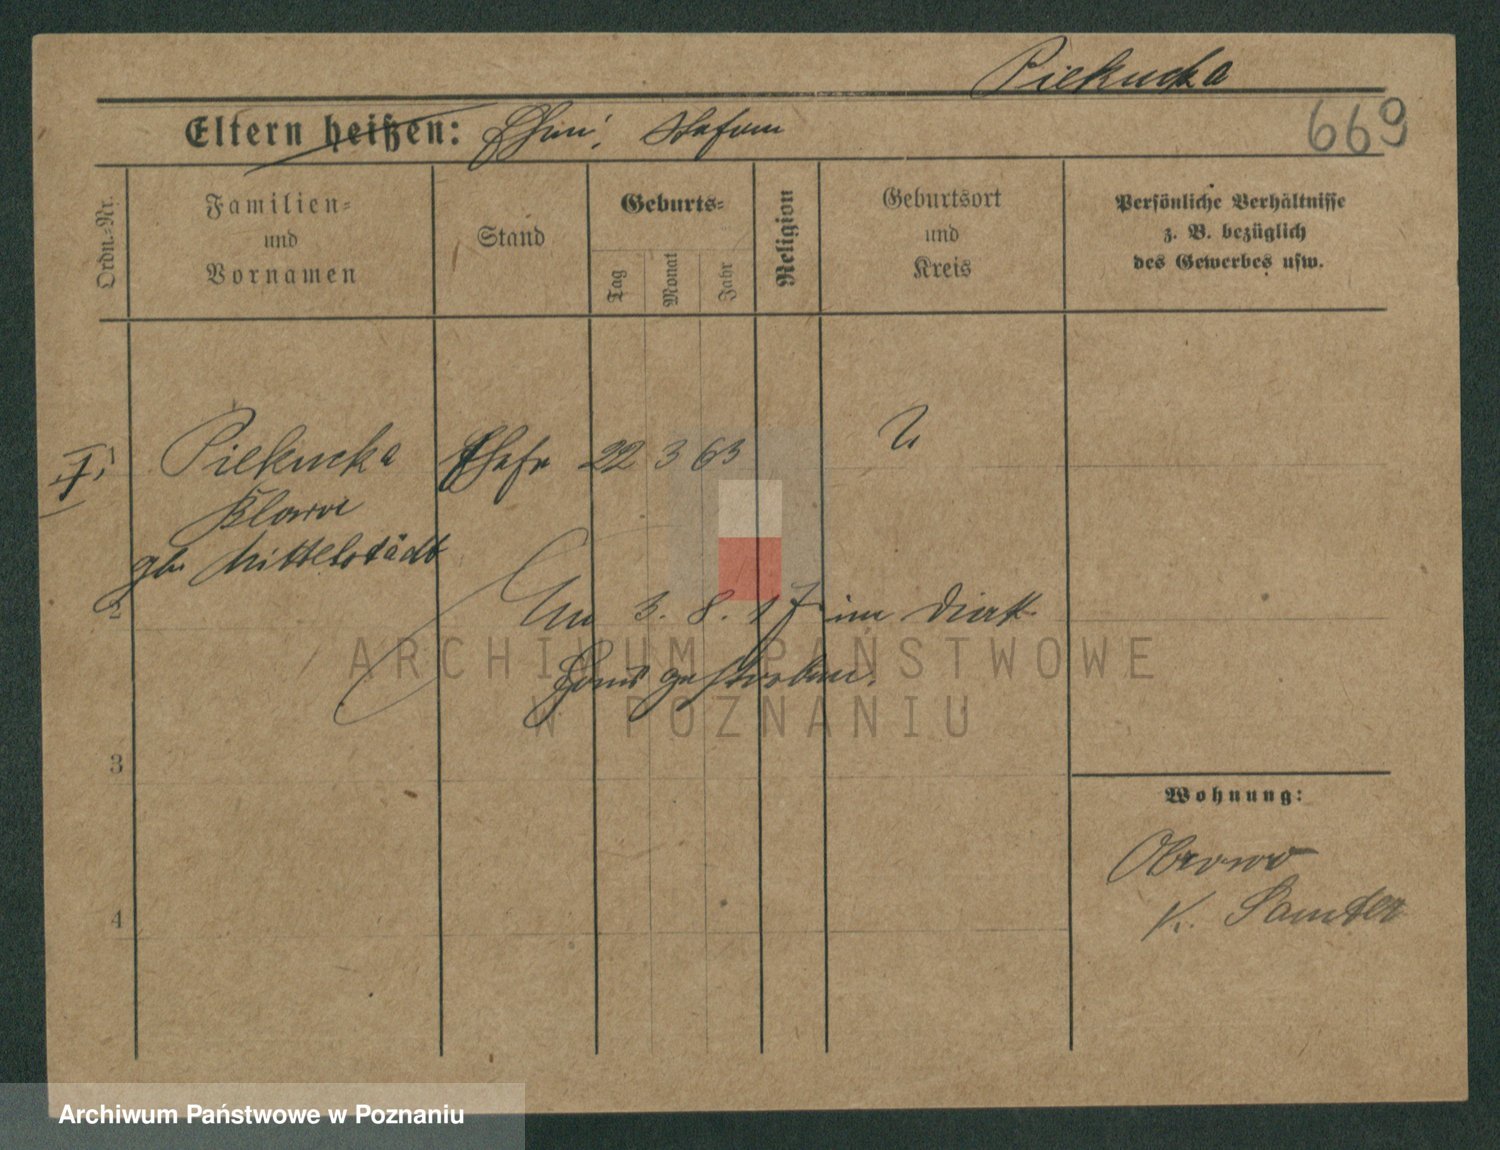 Piekucka
669
Eltern heißen: Ehm: Stefan
Ordn.-Nr.
Familien-
und
Vornamen
Stand
Geburts-
Tag
Monat
Jahr
Religion
Geburtsort
und
Kreis
Persönliche Verhältnisse
z. B. bezüglich
des Gewerbes usw.
I. 1 Piekucka Ehefr 22 3 63
Klara
gb. Mittelstädt
2
Am 3. 8. 17 im Diak.
Haus gestorben.
3
Wohnung:
Obrowo
K. Samter
4
ARCHIWUM PAŃSTWOWE
W POZNANIU
Archiwum Państwowe w Poznaniu